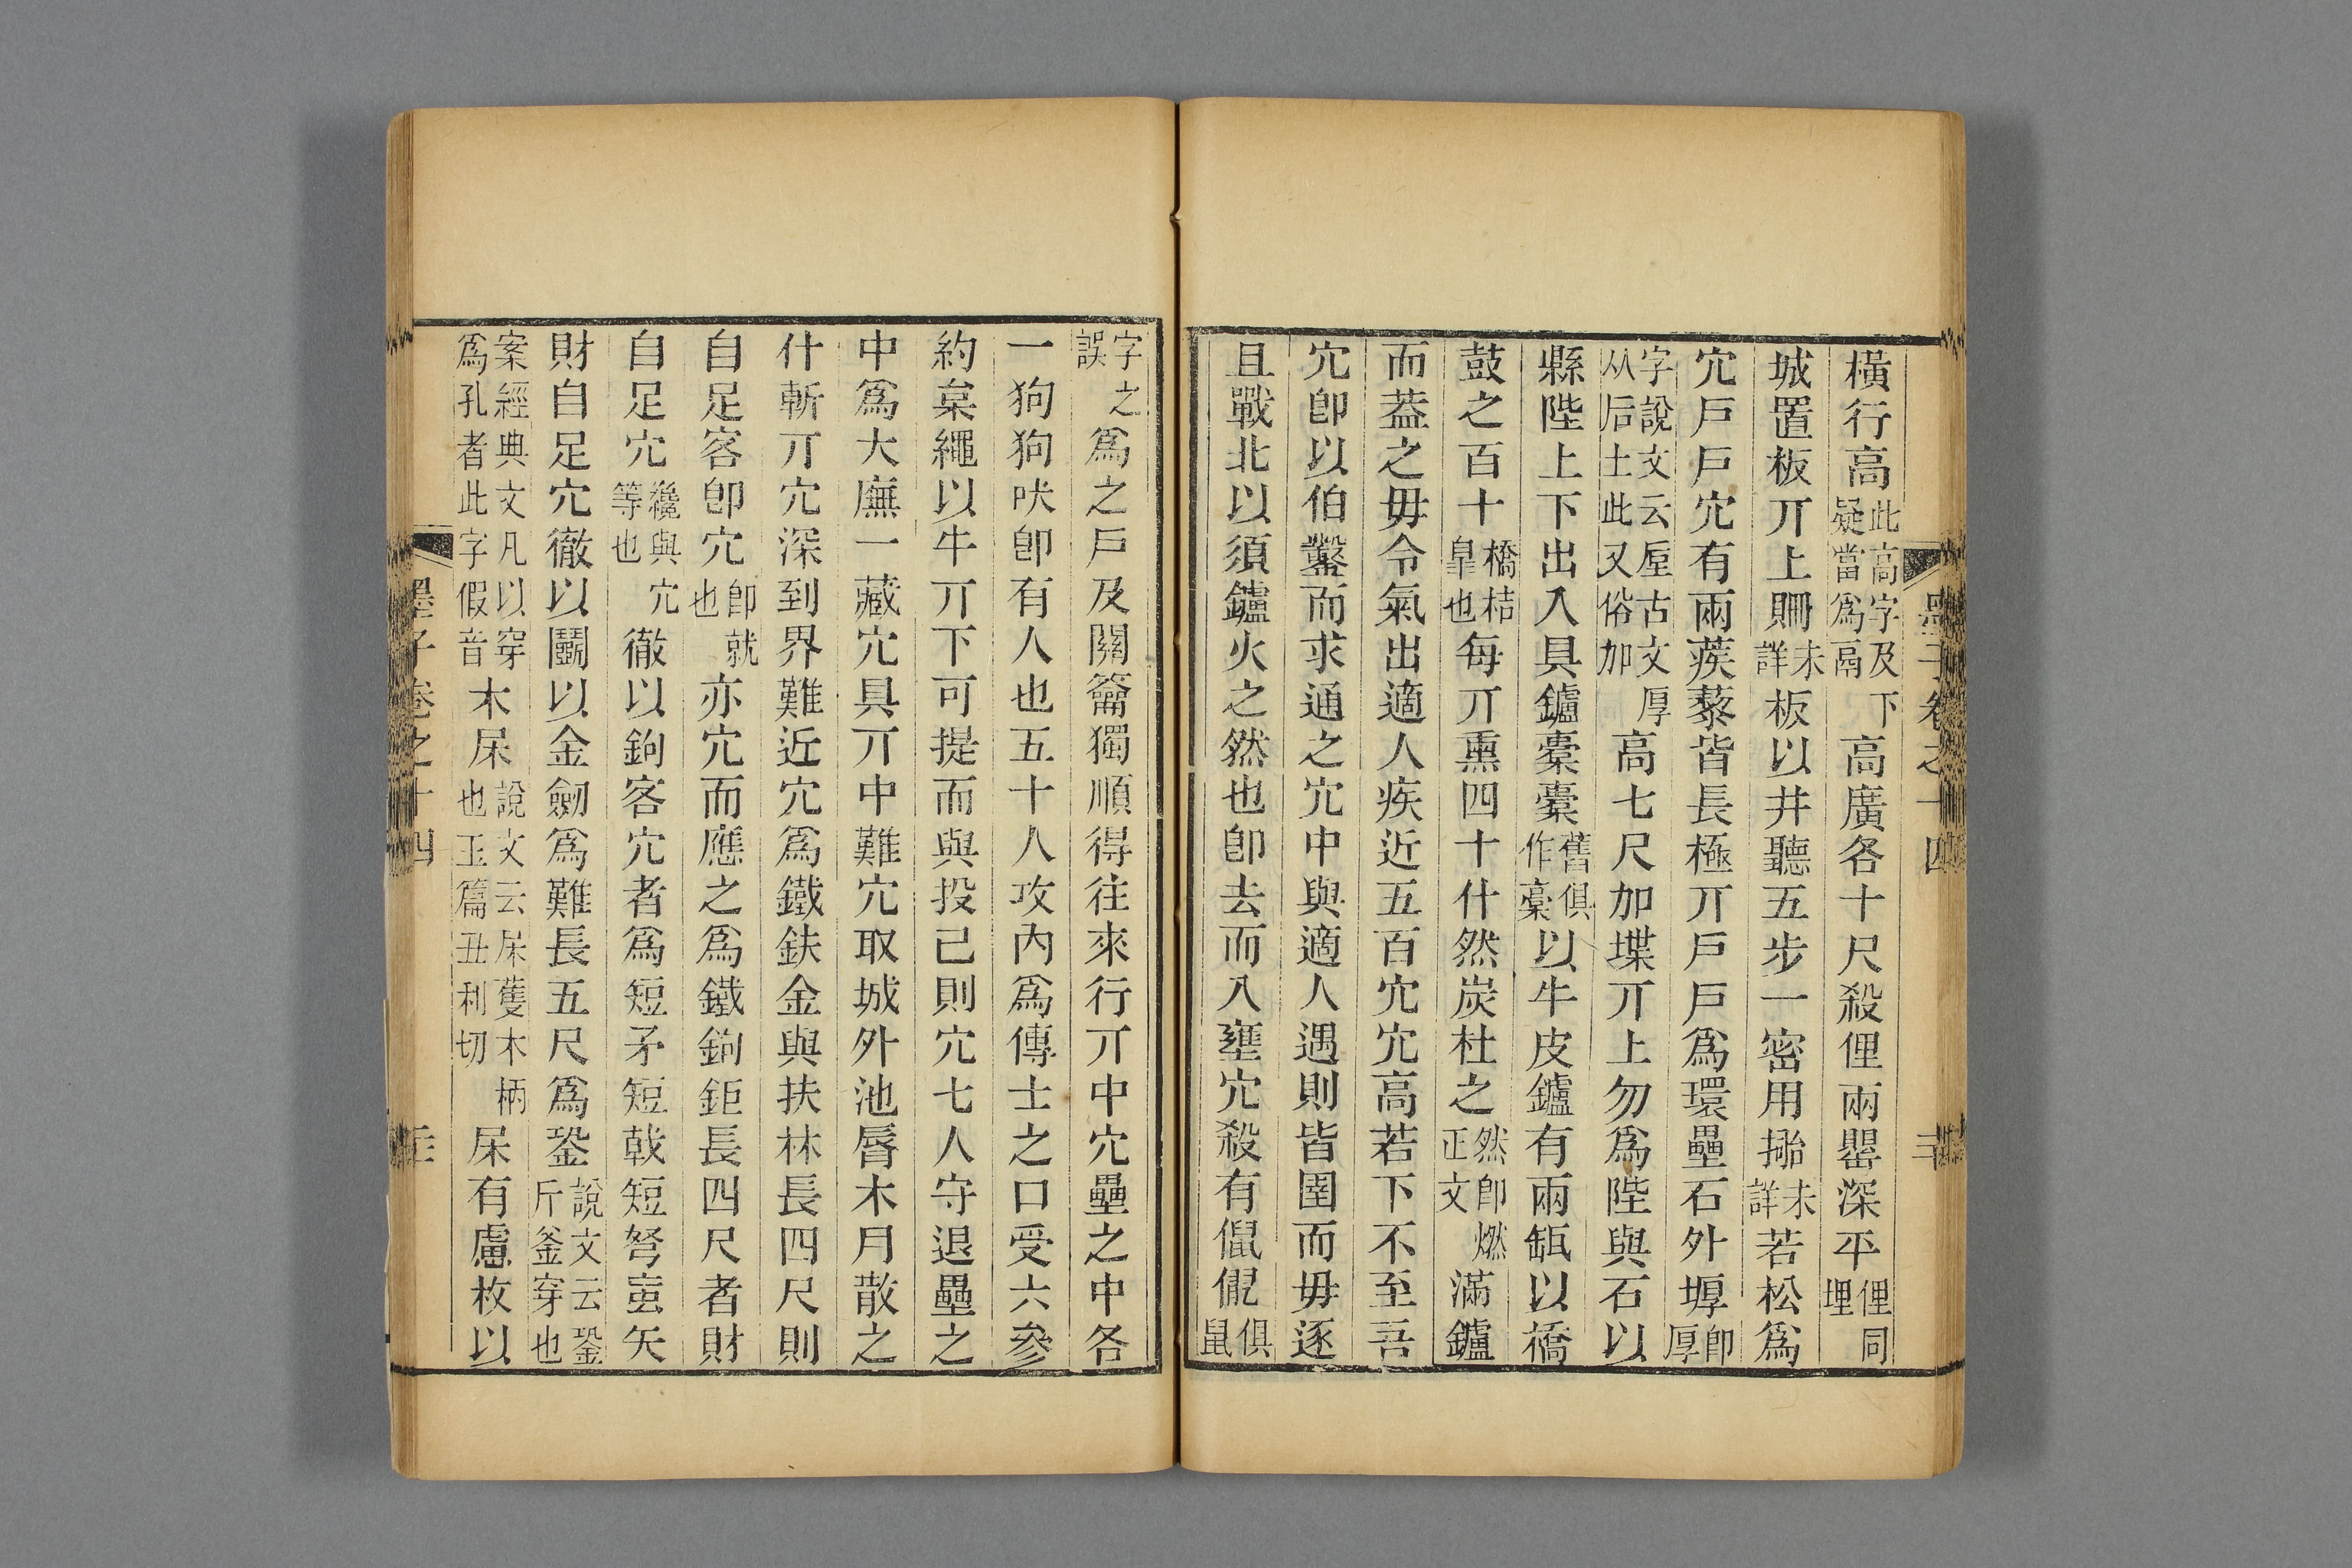 墨子卷之十四
橫行高此高字及下疑當爲鬲高廣各十尺殺俚兩罌深平俚同埋
城置板丌上未詳板以井聽五步一密用未詳若松爲
穴戶戶穴有兩蒺藜皆長極丌戶戶爲環壘石外即厚
字說文云垕古文厚从后土此又俗加高七尺加堞丌上勿爲陛與石以
縣陛上下出入具鑪橐橐舊俱作槖以牛皮鑪有兩缻以橋
鼓之百十橋桔皐也每丌熏四十什然炭杜之然即燃正文滿鑪
而葢之毋令氣出適人疾近五百穴穴高若下不至吾
穴卽以伯鑿而求通之穴中與適人遇則皆圉而毋逐
且戰北以須鑪火之然也卽去而入壅穴殺有俱鼠
字之誤爲之戶及關籥獨順得往來行丌中穴壘之中各
一狗狗吠卽有人也五十人攻內爲傳士之口受六參
約枲繩以牛丌下可提而與投已則穴七人守退壘之
中爲大廡一藏穴具丌中難穴取城外池脣木月散之
什斬丌穴深到界難近穴爲鐵鈇金與扶林長四尺則
自足客卽穴卽就也亦穴而應之爲鐵鉤鉅長四尺者財
自足穴纔與穴等也徹以鉤客穴者爲短矛短戟短弩䖟矢
財自足穴徹以鬭以金劒爲難長五尺爲銎說文云銎斤釜穿也
案經典文凡以穿爲孔者此字假音木㞑說文云㞑䉂木柄也玉篇丑利切㞑有慮枚以
墨子卷之十四